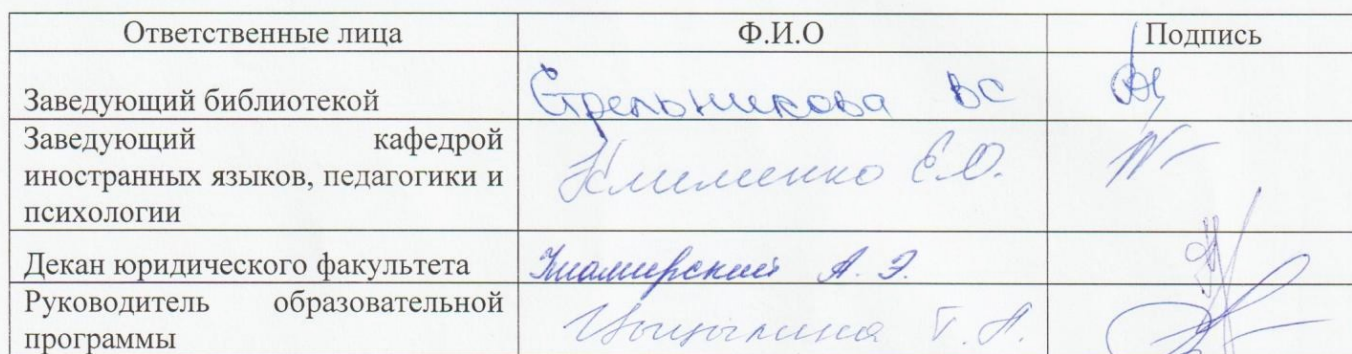 Ответственные лица Ф.И.О Подпись
Заведующий библиотекой Стрельникова ВС
Заведующий кафедрой
иностранных языков, педагогики и
психологии
Клименко Е.О.
Декан юридического факультета А. Э.
Руководитель образовательной
программы